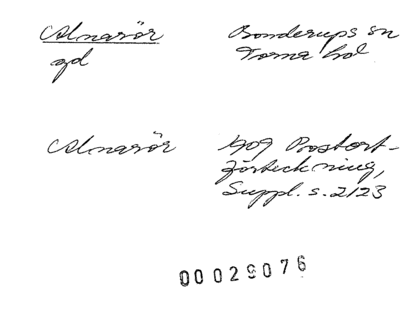 Alnarör
Bonderups sn
gd
Torna hd
Alnarör
1909 Postort-
förteckning,
Suppl. s. 2123
00029076